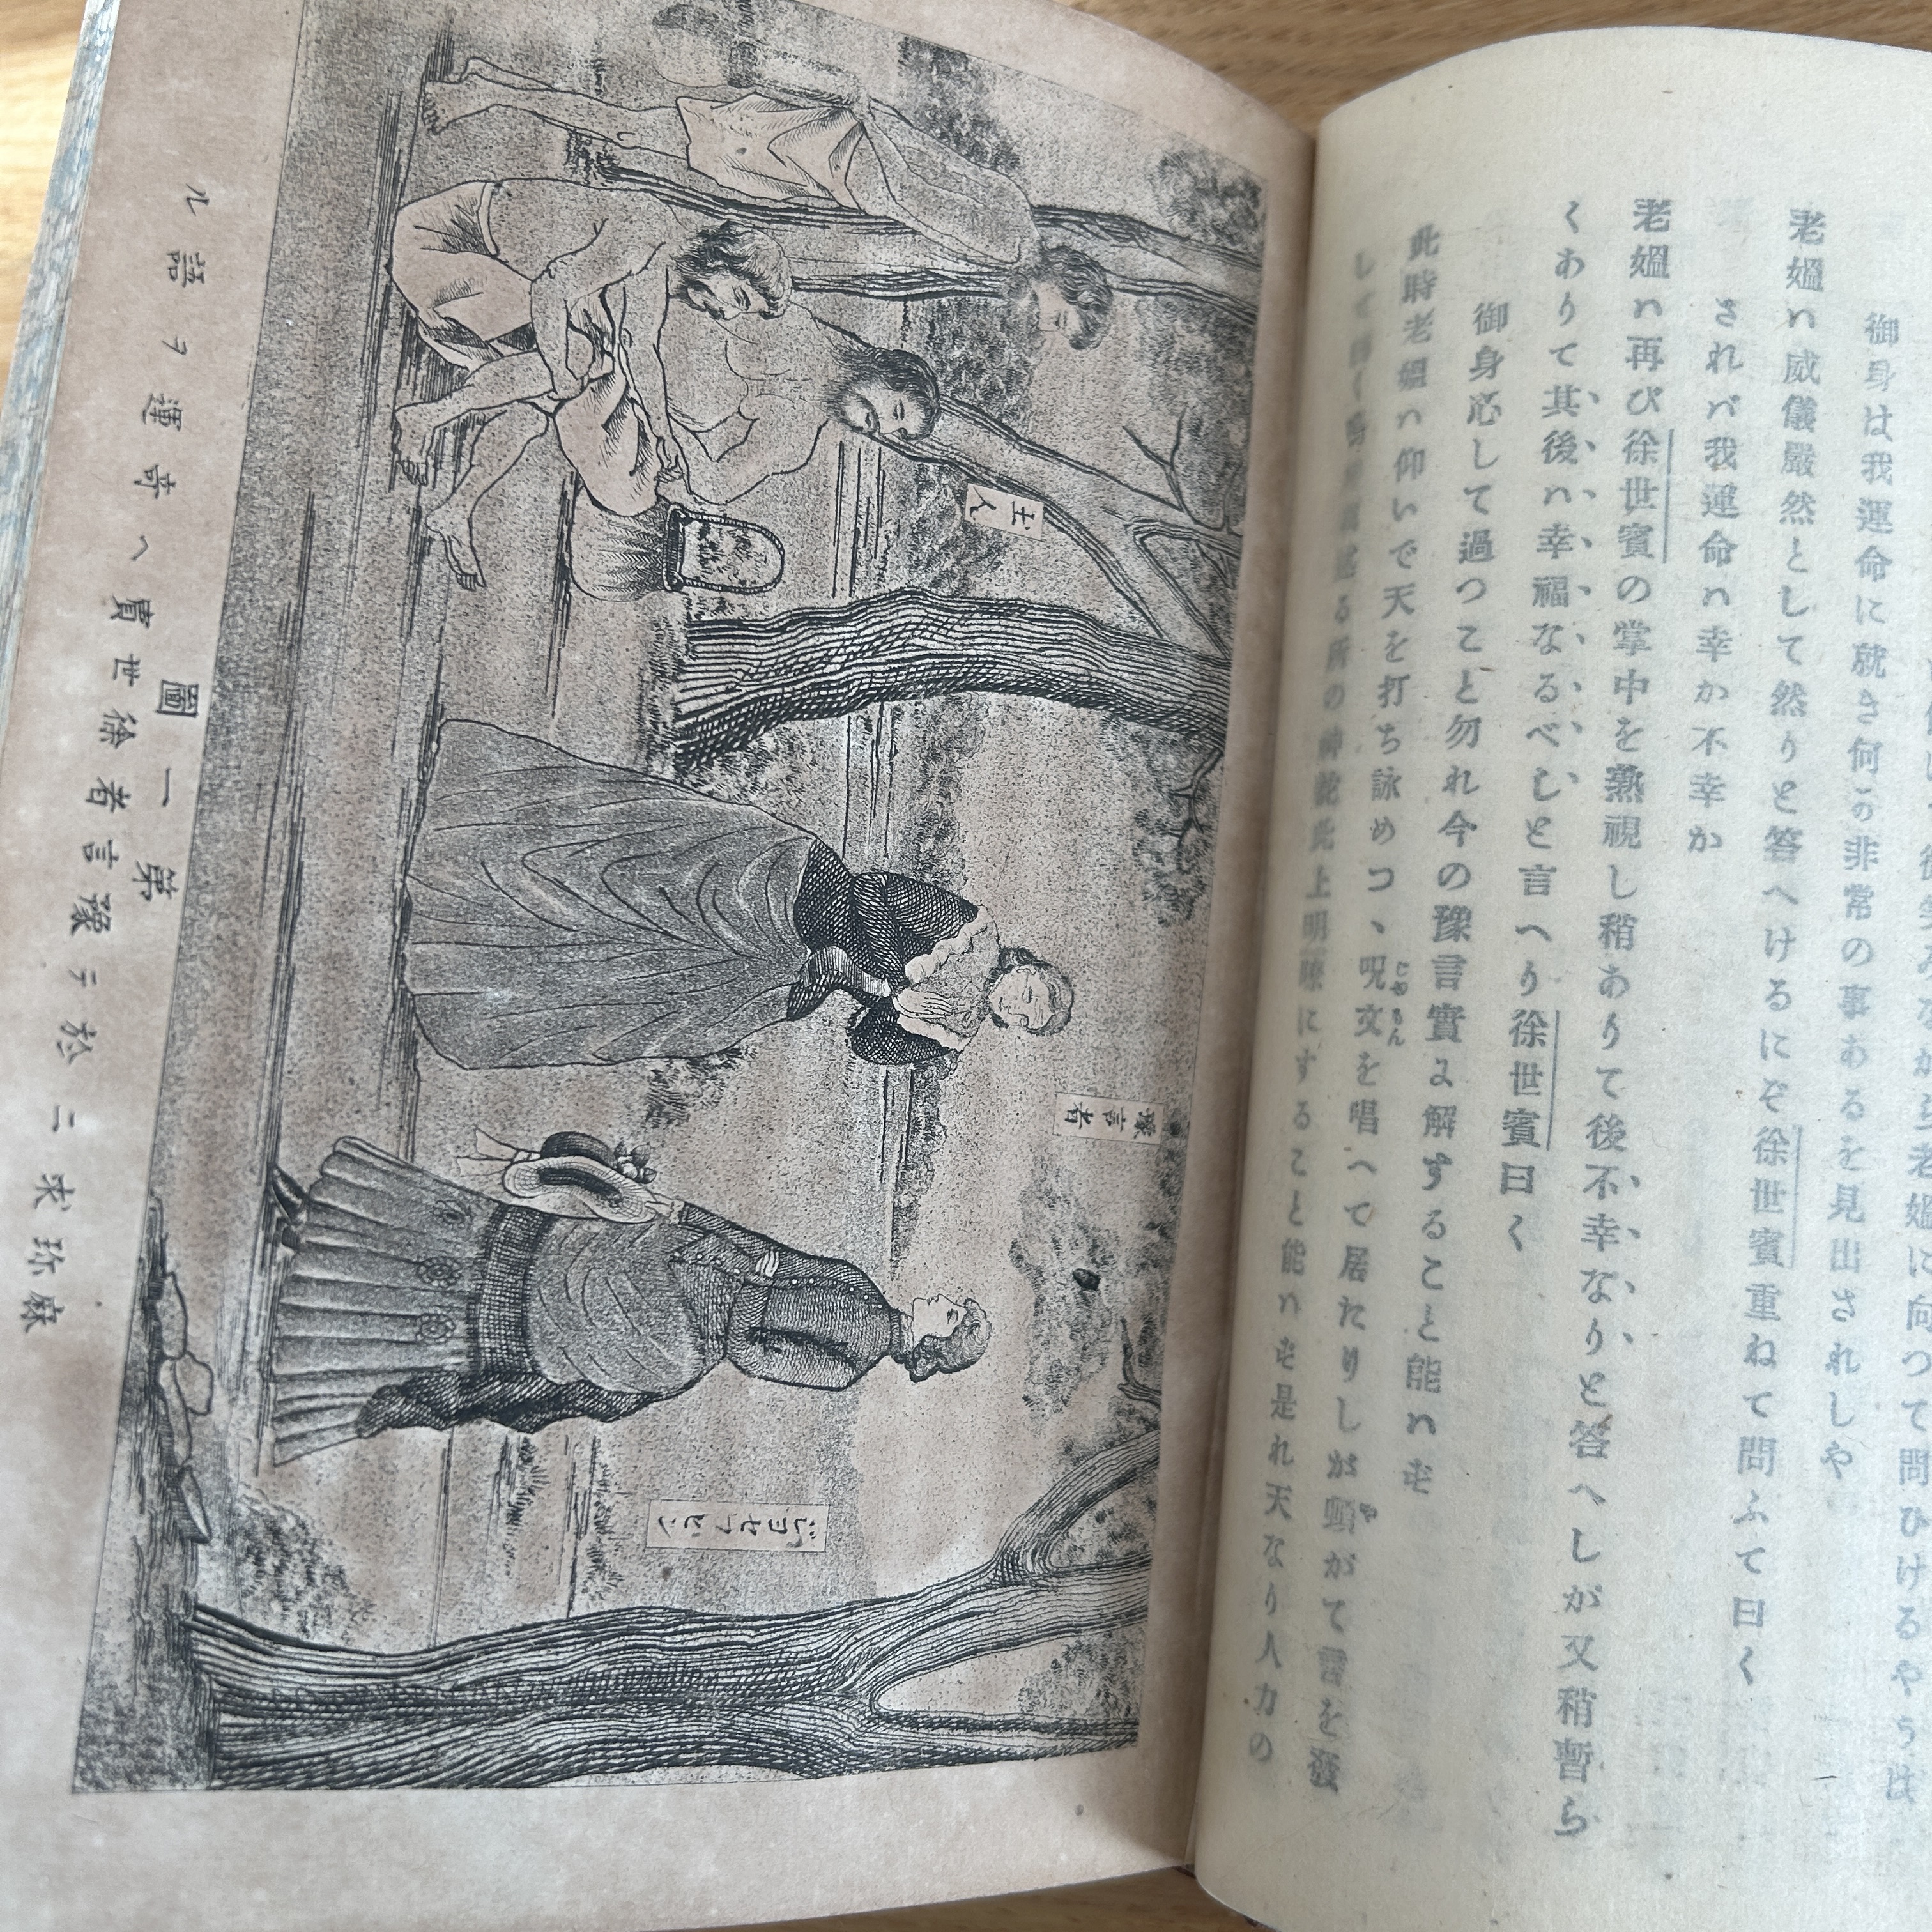 老媼に向つて問ひけるやうは
御身は我運命に就き何か非常の事あるを見出されしや
老媼ハ威儀嚴然として然りと答へけるにぞ徐世賓重ねて問ふて曰く
されバ我運命ハ幸か不幸か
老媼ハ再び徐世賓の掌中を熟視し稍ありて後不幸なりと答へしが又稍暫ら
くありて其後ハ幸福なるべしと言へり徐世賓曰く
御身必して過つこと勿れ今の豫言實よ解すること能ハず
此時老媼ハ仰いで天を打ち詠めつゝ呪文を唱へて居たりしが頓がて言を發
る所の神託此上明瞭にすること能ハず是れ天なり人力の
土人
豫言者
ジヨセフヒン
第一圖
麻珎求ニ於テ豫言者徐世賓ヘ奇運ヲ語ル